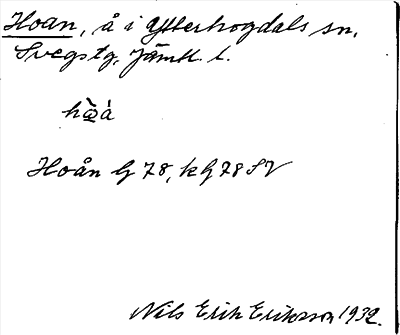 Hoan, å i Ytterhogdals sn.
Svegs tg. Jämtl. l.
Hoån G 78, k G 78 SV
Nils Erik Eriksson 1932.